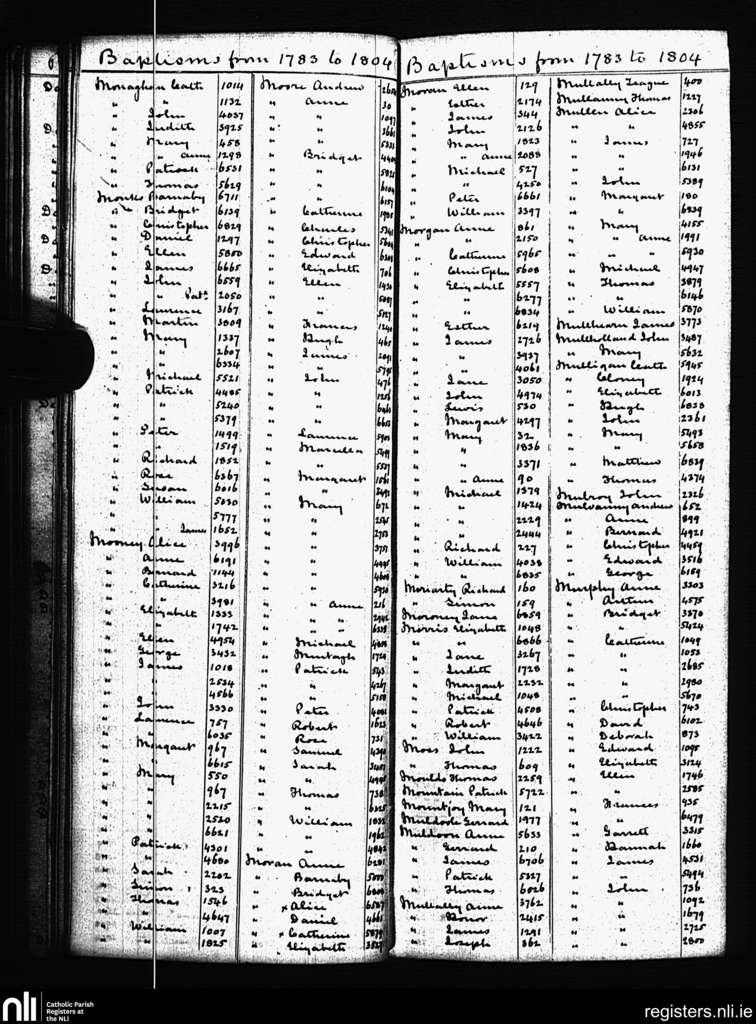 Baptisms from 1783 to 1804
Monaghan Cath 1014
" " 1132
" John 4037
" Judith 3925
" Mary 458
" " Anne 1298
" Patrick 6531
" Thomas 5629
Monks Barnaby 6711
" Bridget 6139
" Christopher 6829
" Daniel 1297
" Ellen 5850
" James 6665
" John 6559
" " Patk 2050
" Laurence 3167
" Martin 3809
" Mary 1337
" " 2607
" " 6334
" Michael 5521
" Patrick 4485
" " 5240
" " 5379
" Peter 1499
" " 1519
" Richard 1852
" Rose 6367
" Susan 6016
" William 5030
" " 5777
" " James 1652
Mooney Alice 3996
" Anne 6191
" Bernard 1144
" Catherine 3216
" " 3981
" Elizabeth 1333
" " 1742
" Ellen 4954
" George 3432
" James 1018
" " 2534
" " 4566
" John 3330
" Laurence 757
" " 6035
" Margaret 967
" " 6615
" Mary 550
" " 967
" " 2215
" " 2520
" " 6621
" Patrick 4301
" " 4680
" Sarah 2202
" Simon 323
" Thomas 1546
" " 4647
" William 1007
" " 1825
Moore Andrew
" Anne 30
" " 1097
" " 3661
" " 5333
" Bridget
" "
" " 6104
" " 6157
" Catherine
" Charles
" Christopher
" Edward
" Elizabeth 706
" Ellen 1430
" "
" "
" Frances 1240
" Hugh
" James 2091
" "
" John 476
" " 1256
" "
" " 6653
" Laurence
" Marcella
" "
" Margaret
" "
" Mary 672
" "
" " 2753
" " 3757
" "
" " 4608
" "
" " Anne 216
" " "
" " "
" Michael
" Murtagh
" Patrick 543
" " 4267
" "
" Peter
" Robert 1623
" Rose 731
" Samuel
" Sarah
" "
" Thomas 738
" " 6325
" William 1832
" " 1962
" " 4842
Moran Anne 6281
" Barnaby
" Bridget
" x Alice
" Daniel 4661
" x Catherine
" Elizabeth
Baptisms from 1783 to 1804
Moran Ellen 129
" Esther 2174
" James 344
" John 2126
" Mary 1823
" " Anne 2088
" Michael 527
" " 4250
" Peter 6661
" William 3397
Morgan Anne 861
" " 2150
" Catherine 5965
" Christopher 5608
" Elizabeth 5557
" " 6277
" " 6834
" Esther 6219
" James 2726
" " 3937
" " 4061
" Jane 3050
" John 4974
" Lewis 530
" Margaret 4297
" Mary 32
" " 1836
" " 3371
" " Anne 90
" Michael 1379
" " 1424
" " 2229
" " 2444
" Richard 227
" William 4038
" " 6835
Moriarty Richard 160
" Simon 159
Moroney Jane 6859
Morris Elizabeth 1048
" " 6866
" Jane 3267
" Judith 1728
" Margaret 2232
" Michael 1048
" Patrick 4508
" Robert 4646
" William 3422
Moss John 1222
" Thomas 609
Moulds Thomas 2259
Mountain Patrick 5722
Mountjoy Mary 121
Muldoole Gerrard 1977
Muldoon Anne 5633
" Gerrard 210
" James 6706
" Patrick 5327
" Thomas 6026
Mullally Anne 3762
" Honor 2415
" James 1291
" Joseph 362
Mullaly Teague 400
Mullanny Thomas 1227
Mullen Alice 2306
" " 4855
" James 727
" " 1946
" " 6131
" John 5389
" Margaret 180
" " 6239
" Mary 4155
" " Anne 1991
" " " 5930
" Michael 4947
" Thomas 3879
" " 6146
" William 5870
Mulhearn James 3773
Mulholland John 3487
" Mary 5632
Mulligan Cath 5945
" Cloney 1924
" Elizabeth 6013
" Hugh 6828
" John 2361
" Mary 5493
" " 5658
" Matthew 6839
" Thomas 4374
Mulroy John 2326
Mulvanny Andrew 652
" Anne 899
" Bernard 4921
" Christopher 4459
" Edward 3516
" George 6159
Murphy Anne 3303
" Arthur 4575
" Bridget 3378
" " 5424
" Catherine 1049
" " 1053
" " 2685
" " 2980
" " 5670
" Christopher 743
" David 6102
" Deborah 873
" Edward 1095
" Elizabeth 3124
" Ellen 1746
" " 2585
" Frances 935
" " 6479
" Garrett 3315
" Hannah 1660
" James 4531
" " 5494
" John 736
" " 1092
" " 1679
" " 2725
" " 2800
nli
Catholic Parish
Registers at
the NLI
registers.nli.ie